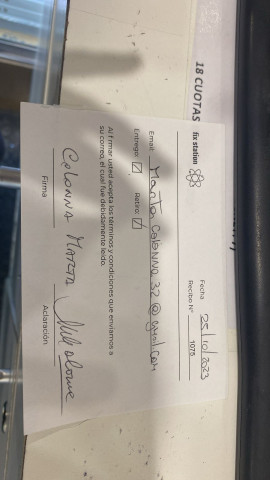 18 CUOTAS
fix station
Fecha 25/10/2023
Recibo N° 1075
Email: Marta Colonna 32@gmail.com
Entrego: ☑ Retiro: ☑
Al firmar usted acepta los términos y condiciones que enviamos a
su correo, el cual fue debidamente leído.
COLONNA MARTA
Firma Aclaración